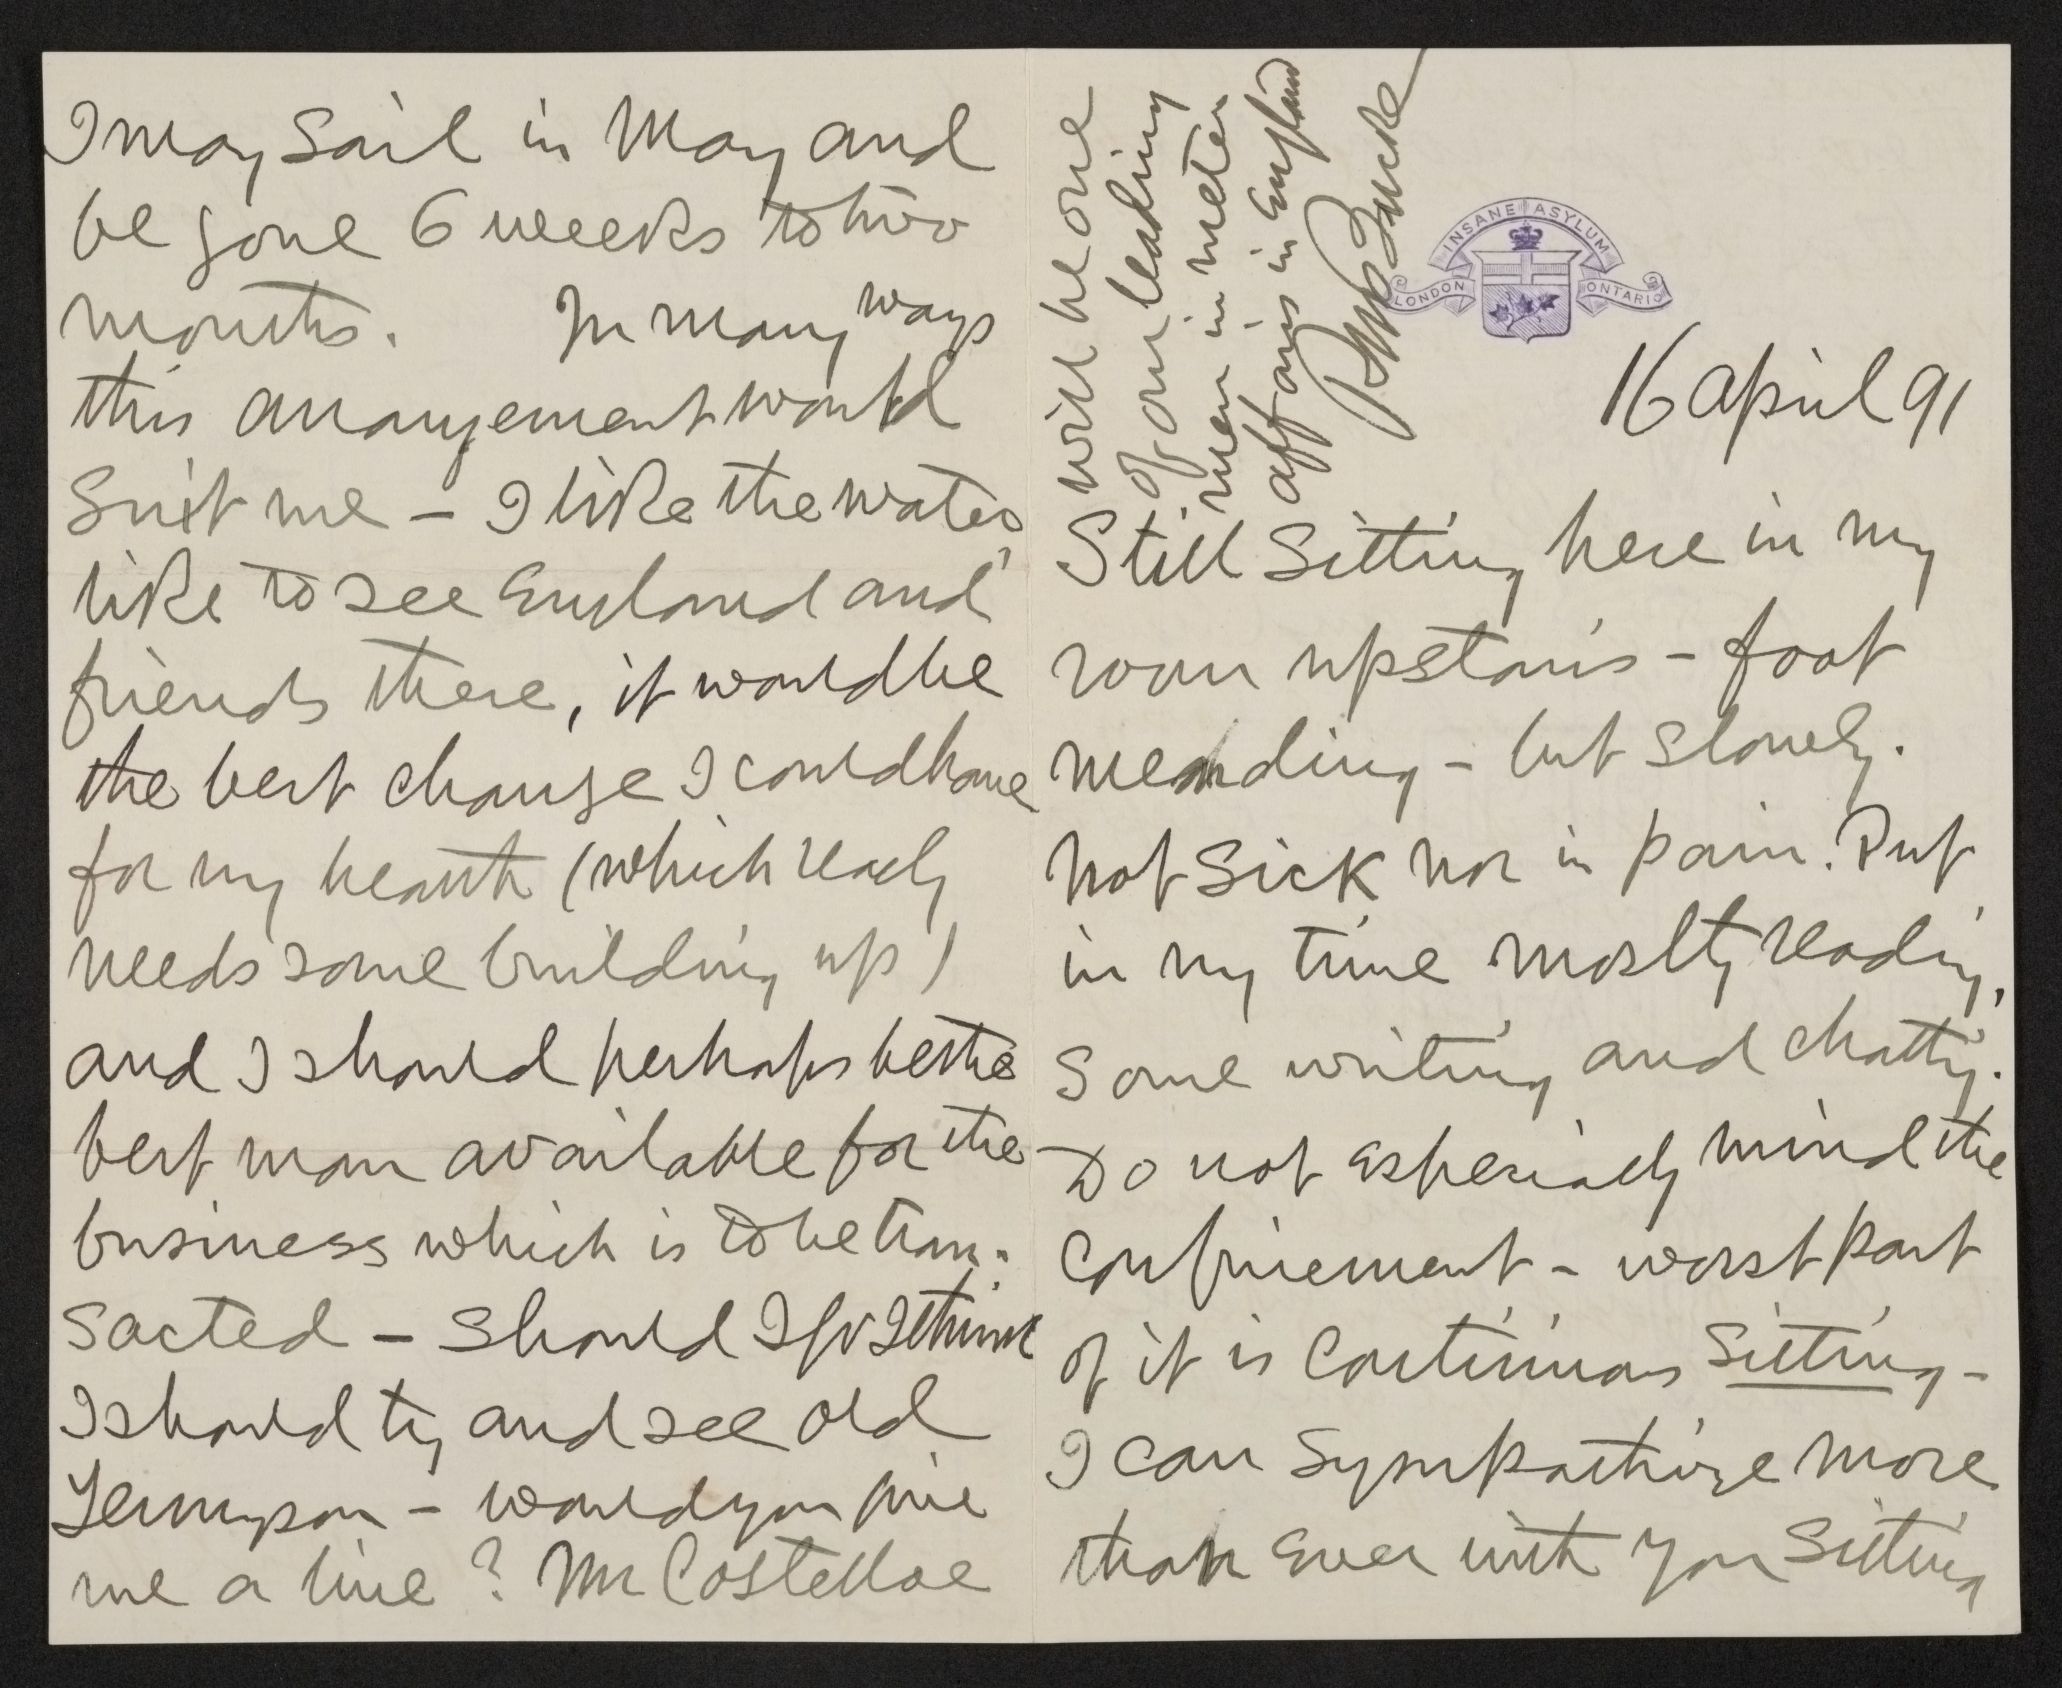 INSANE ASYLUM
LONDON ONTARIO
16 April 91
Still Sitting here in my
room upstairs – foot
mending – but slowly.
Not Sick nor in pain. Put
in my time mostly reading,
Some writing and chatting.
Do not especially mind the
Confinement – worst part
of it is Continuous Sitting –
I can Sympathize more
than ever with you Sitting
I may Sail in May and
be gone 6 weeks to two
months. In many ways
this arrangement would
Suit me – I like the water
like to see England and
friends there, it would be
the best change I could have
for my health (which really
needs some building up)
and I should perhaps be the
best man available for the
business which is to be tran:
sacted – Should I go I think
I should try and see old
Tennyson – would you give
me a line? Mr Costelloe
will be one
of our leading
men in meter
affairs in England
RM Bucke